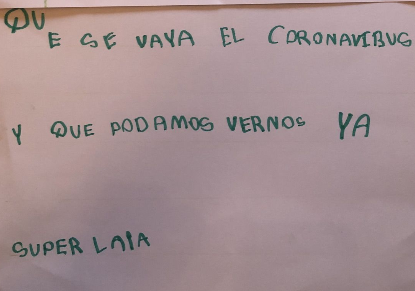 QUE SE VAYA EL CORONAVIRUS
Y QUE PODAMOS VERNOS YA
SUPER LAIA